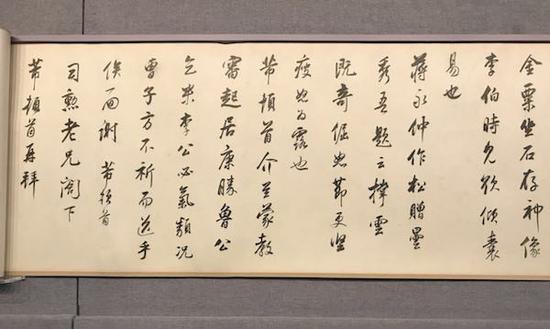 金粟坐石存神像
李伯時欲傾囊
易也
蔣永仲作松贈曇
秀吾題云撐雲
既奇倔如節更堅
瘦如露也
芾頓首介至蒙教
審起居康勝魯公
乞米李公必氣類況
曹子方不祈而送乎
俟面謝 芾頓首
司勳老兄閣下
芾頓首再拜